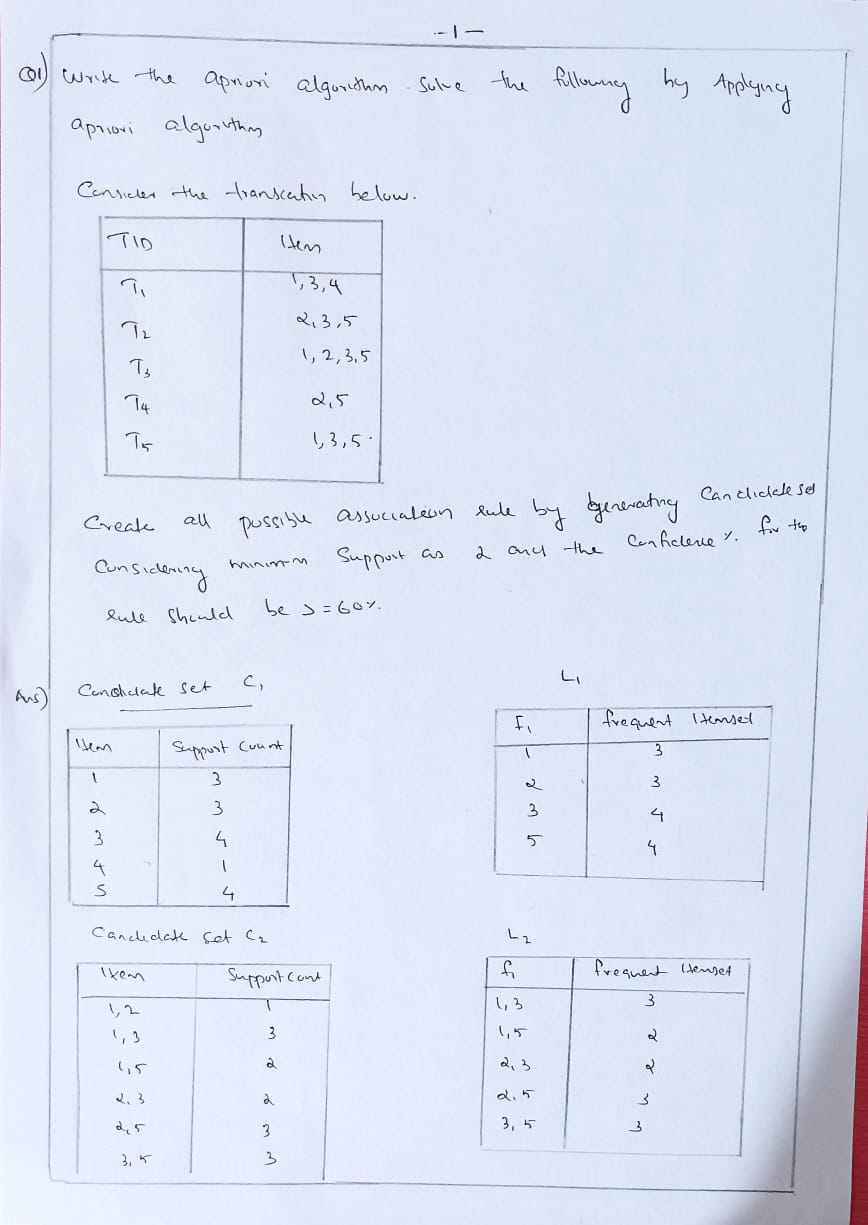 -1-
Q1) Write the apriori algorithm. Solve the following by Applying
apriori algorithm
Consider the transcation below.
TID Item
T1 1,3,4
T2 2,3,5
T3 1,2,3,5
T4 2,5
T5 1,3,5.
Create all possible association rule by generating Candidate set
Considering minimum Support as 2 and the Confidence %. for the
rule should be >=60%.
Ans) Candidate set C1
Item Support Count
1 3
2 3
3 4
4 1
5 4
L1
f1 frequent Itemset
1 3
2 3
3 4
5 4
Candidate set C2
Item Support Count
1,2 1
1,3 3
1,5 2
2,3 2
2,5 3
3,5 3
L2
f1 frequent Itemset
1,3 3
1,5 2
2,3 2
2,5 3
3,5 3